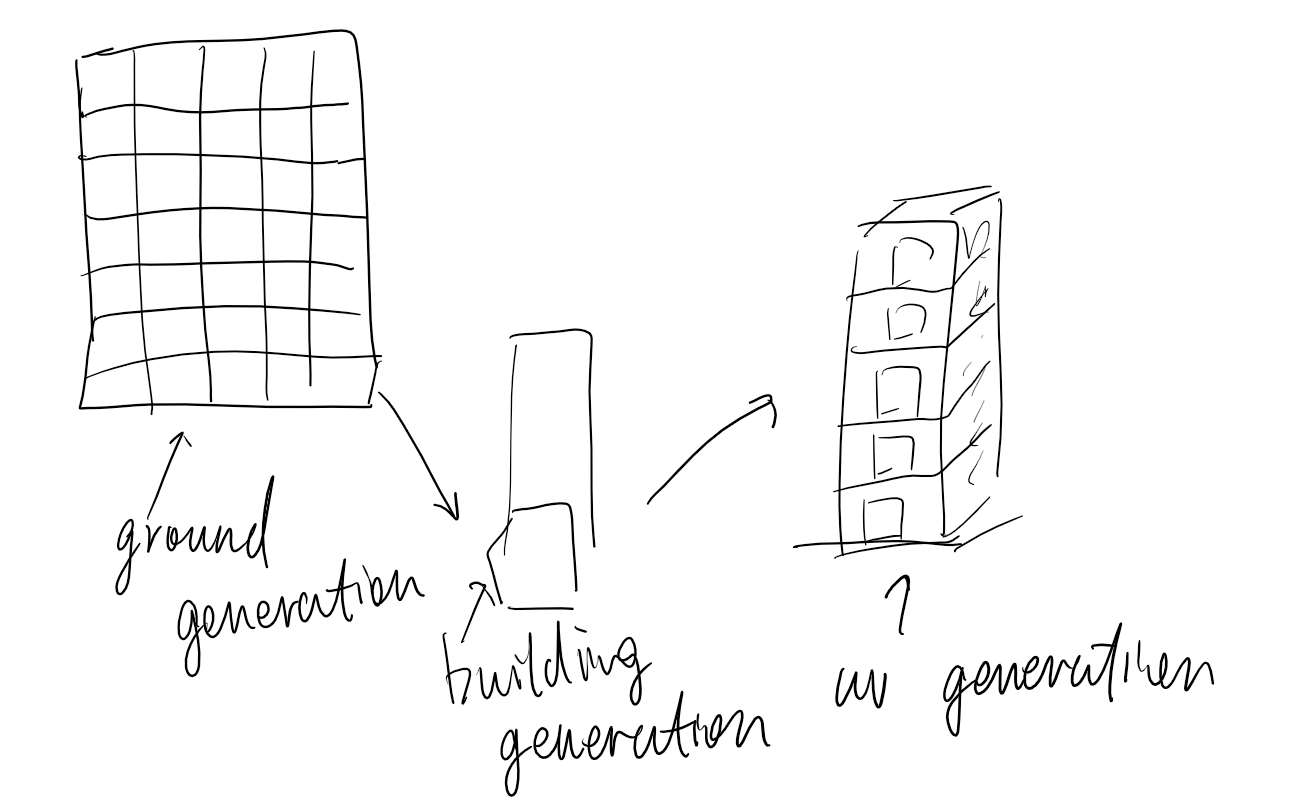 ground
generation
building
generation
uv generation